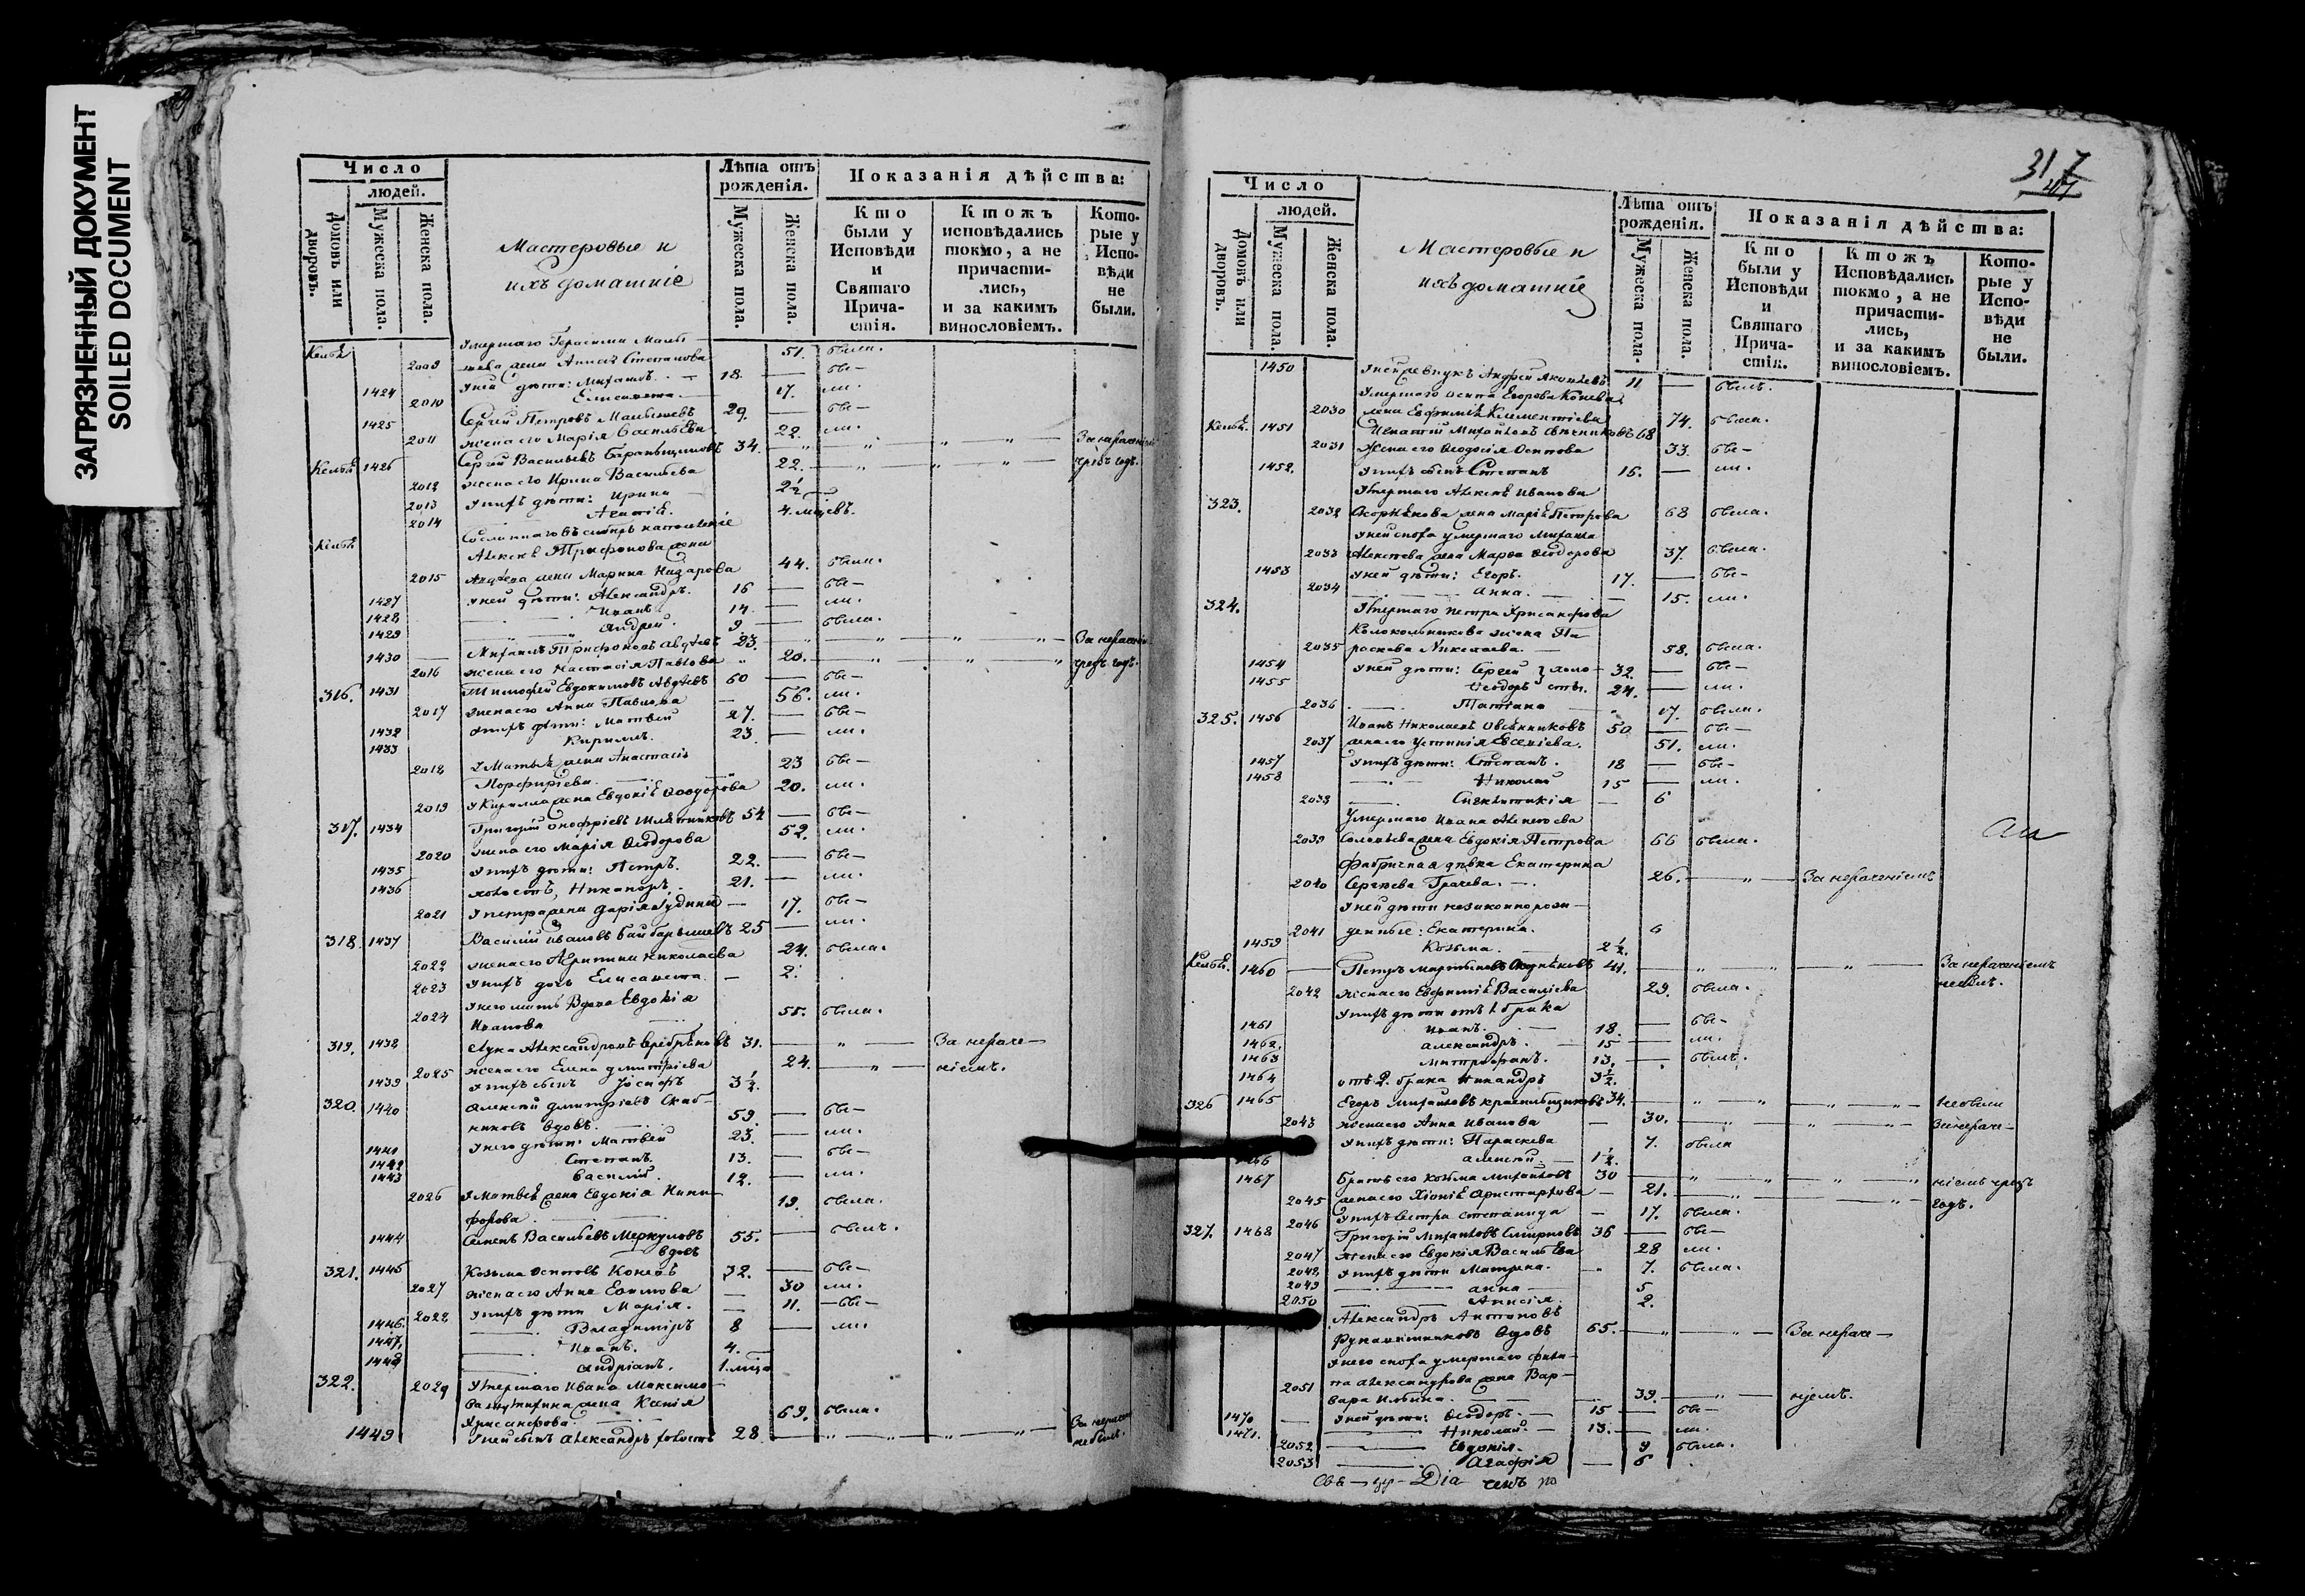 ЗАГРЯЗНЕННЫЙ ДОКУМЕНТ
SOILED DOCUMENT
Число
людей.
Домовъ или дворовъ.
Мужеска пола.
Женска пола.
Мастеровые и
ихъ домашніе
Лѣта отъ
рожденія.
Мужеска пола.
Женска пола.
Показанія дѣйства:
Кто были у Исповѣди и Святаго Прича-стія.
Ктожъ исповѣдались токмо, а не причасти-лись, и за какимъ винословіемъ.
Кото-рые у Испо-вѣди не были.
Умершаго Герасима
2009 жена Анисья Степанова 51. была.
1424 У ней дѣти: Михаилъ 18 — бы—
2010 Елисавета 17. ли.
1425 Сергей Петровъ 29. — бы—
2011 жена его Марія Васильева 22. ли.
1426 Сергей Васильевъ 34.
2012 жена его Ирина Васильева 22.
2013 У нихъ дѣти: Ирина 2½
2014 4. мѣсяцъ.
Алексѣя Трифонова жена
2015 Марина Назарова 44. была.
1427 У ней дѣти: Александръ. 16 — бы—
1428 Иванъ. 14. — ли.
1429 Андрей. 9. — была.
1430 Михаилъ Трифоновъ Авдѣевъ 23.
2016 жена его Настасія Павлова 20.
316. 1431 Тимофей Евдокимовъ Авдѣевъ 60 — бы—
2017 жена его Анна Павлова 56. ли.
1432 У нихъ дѣти: Матвей 27. — бы—
1433 Кирилъ. 23. — ли.
2018 У Матвѣя жена Анастасія
Порфирьева 23 бы—
2019 У Кирилла жена Евдокія Ѳеодорова 20. ли.
317. 1434 Григорій Онофріевъ 54 — бы—
2020 жена его Марія Ѳеодорова 52. ли.
1435 У нихъ дѣти: Петръ. 22. — бы—
1436 холостъ, Никаноръ. 21. — ли.
2021 У Петра жена Дарія 17. бы—
318. 1437 Василій Ивановъ 25 — ли.
2022 жена его Николаева 24. была.
2023 У нихъ дочь Елисавета. — 2.
2024 У него мать вдова Евдокія
Иванова 55. была.
319. 1438 Лука Александровъ Серебряковъ 31. — За нераче—
2025 жена его Елена Дмитріева 24. ніемъ.
1439 У нихъ сынъ Іосифъ 3½.
320. 1440 Алексѣй Дмитріевъ
вдовъ. 59. — бы—
1441 У него дѣти: Матвей 23. — ли.
1442 Степанъ. 13. — бы—
1443 Василій. 12. — ли.
2026 У Матвѣя жена Евдокія Ники—
форова 19. была.
1444 Семенъ Васильевъ Меркуловъ 55. — былъ.
вдовъ
321. 1445 Козьма Осиповъ Коневъ 32. — бы—
2027 жена его Анна 30 ли.
2028 У нихъ дѣти Марія. 11. — бы—
1446. Владимиръ 8 — ли.
1447. Иванъ. 4.
1448 Андріанъ. 1. мѣся
322. 2029 Умершаго Ивана Максимо—
ва жена Ксенія
Хрисанфова. 69. была.
1449 У ней сынъ Александръ холостъ 28.
317
Число
людей.
Домовъ или дворовъ.
Мужеска пола.
Женска пола.
Мастеровые и
ихъ домашніе
Лѣта отъ
рожденія.
Мужеска пола.
Женска пола.
Показанія дѣйства:
Кто были у Исповѣди и Святаго Прича-стія.
Ктожъ Исповѣдались токмо, а не причасти-лись, и за какимъ винословіемъ.
Кото-рые у Испо-вѣди не были.
1450 Андрей Яковлевъ 11 — былъ.
Умершаго Осипа Егорова Конева
2030 жена Евфимія Климентіева 74. была.
1451 Игнатій Михайловъ 68
2031 Жена его Ѳеодосія Осипова 33. бы—
1452. У нихъ сынъ Степанъ 16. — ли.
Умершаго Алексѣя Иванова
323. 2032 жена Марія Петрова 68 была.
У ней сноха умершаго Михаила
2033 Алексѣева жена Марѳа Ѳеодорова 37. была.
1453 У ней дѣти: Егоръ. 17. — бы—
2034 Анна. 15. ли.
324. Умершаго Петра Хрисанфова
Колокольникова жена Па—
2035 раскева Николаева. 58. была.
1454 У ней дѣти: Сергей холо— 32. — бы—
1455 Ѳеодоръ сты. 24. — ли.
2036 Татіана 17. была.
325. 1456 Иванъ Николаевъ Овсянниковъ 50 — бы—
2037 жена его Устинія Евсеніева. 51. ли.
1457 У нихъ дѣти: Степанъ. 18 — бы—
1458 Николай 15 — ли.
2038 Синклитикія — 6
Умершаго Ивана Алексѣева
2039 жена Евдокія Петрова 66 была.
Фабричная дѣвка Екатерина
2040 Сергѣева Грачева. 26. — За нераченіемъ
У ней дѣти незаконнорож—
2041 денные: Екатерина. 6
1459 Козьма. 2½.
1460 Петръ Мартыновъ 41. — За нераченіемъ
2042 жена его Евфимія Василіева 29. была. небылъ.
У нихъ дѣти отъ 1. брака
1461 Иванъ. 18. — бы—
1462. Александръ. 15 — ли.
1463 Митрофанъ. 13. былъ.
1464 отъ 2. брака Никандръ 3½.
326 1465 Егоръ Михайловъ Красильщиковъ 34. — небыли
2043 жена его Анна Иванова — 30. за нераче—
У нихъ дѣти: Параскева 7. была
1466 Алексѣй. 1½.
1467 Братъ его Козьма Михайловъ 30
2045 жена его Хіонія Аристархова — 21. годъ.
2046 У нихъ сестра Степанида — 17. была.
327. 1468 Григорій Михайловъ Смирновъ 36 — бы—
2047 жена его Евдокія Васильева 28 ли.
2048 У нихъ дѣти Матрена. 7. была.
2049 Анна 5
2050 Анисія. 2.
Александръ Антоновъ
Рукавишниковъ вдовъ 65. — За нераче—
У него сноха умершаго Фили—
2051 па Александрова жена Вар—
вара Ильина. 39. — ніемъ.
1470 У ней дѣти: Ѳеодоръ. 15 — бы—
1471. Николай. 13. — ли.
2052 Евдокія. 9 была.
2053 Агафія — 6